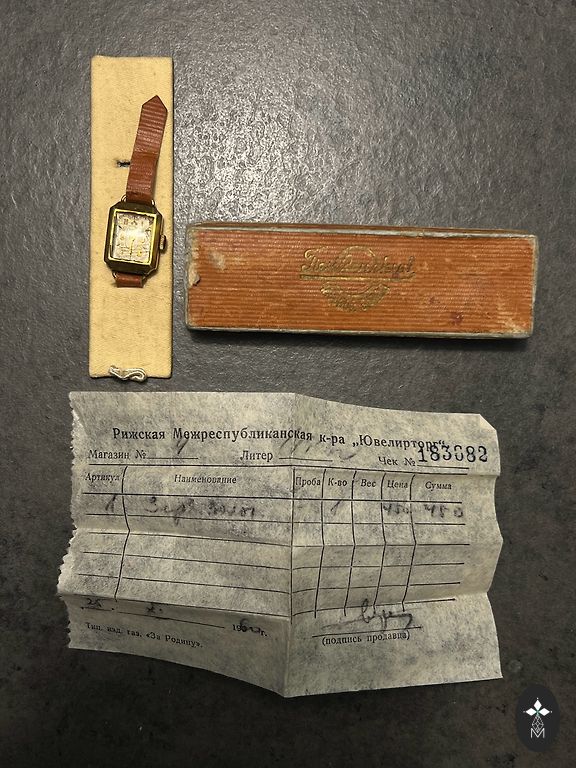 Рижская Межреспубликанская к-ра „Ювелирторг“
Магазин № Литер Чек № 183082
Артикул Наименование Проба К-во Вес Цена Сумма
1 1 450 450
25. 1960 г.
(подпись продавца)
Тип. изд. газ. «За Родину».
M